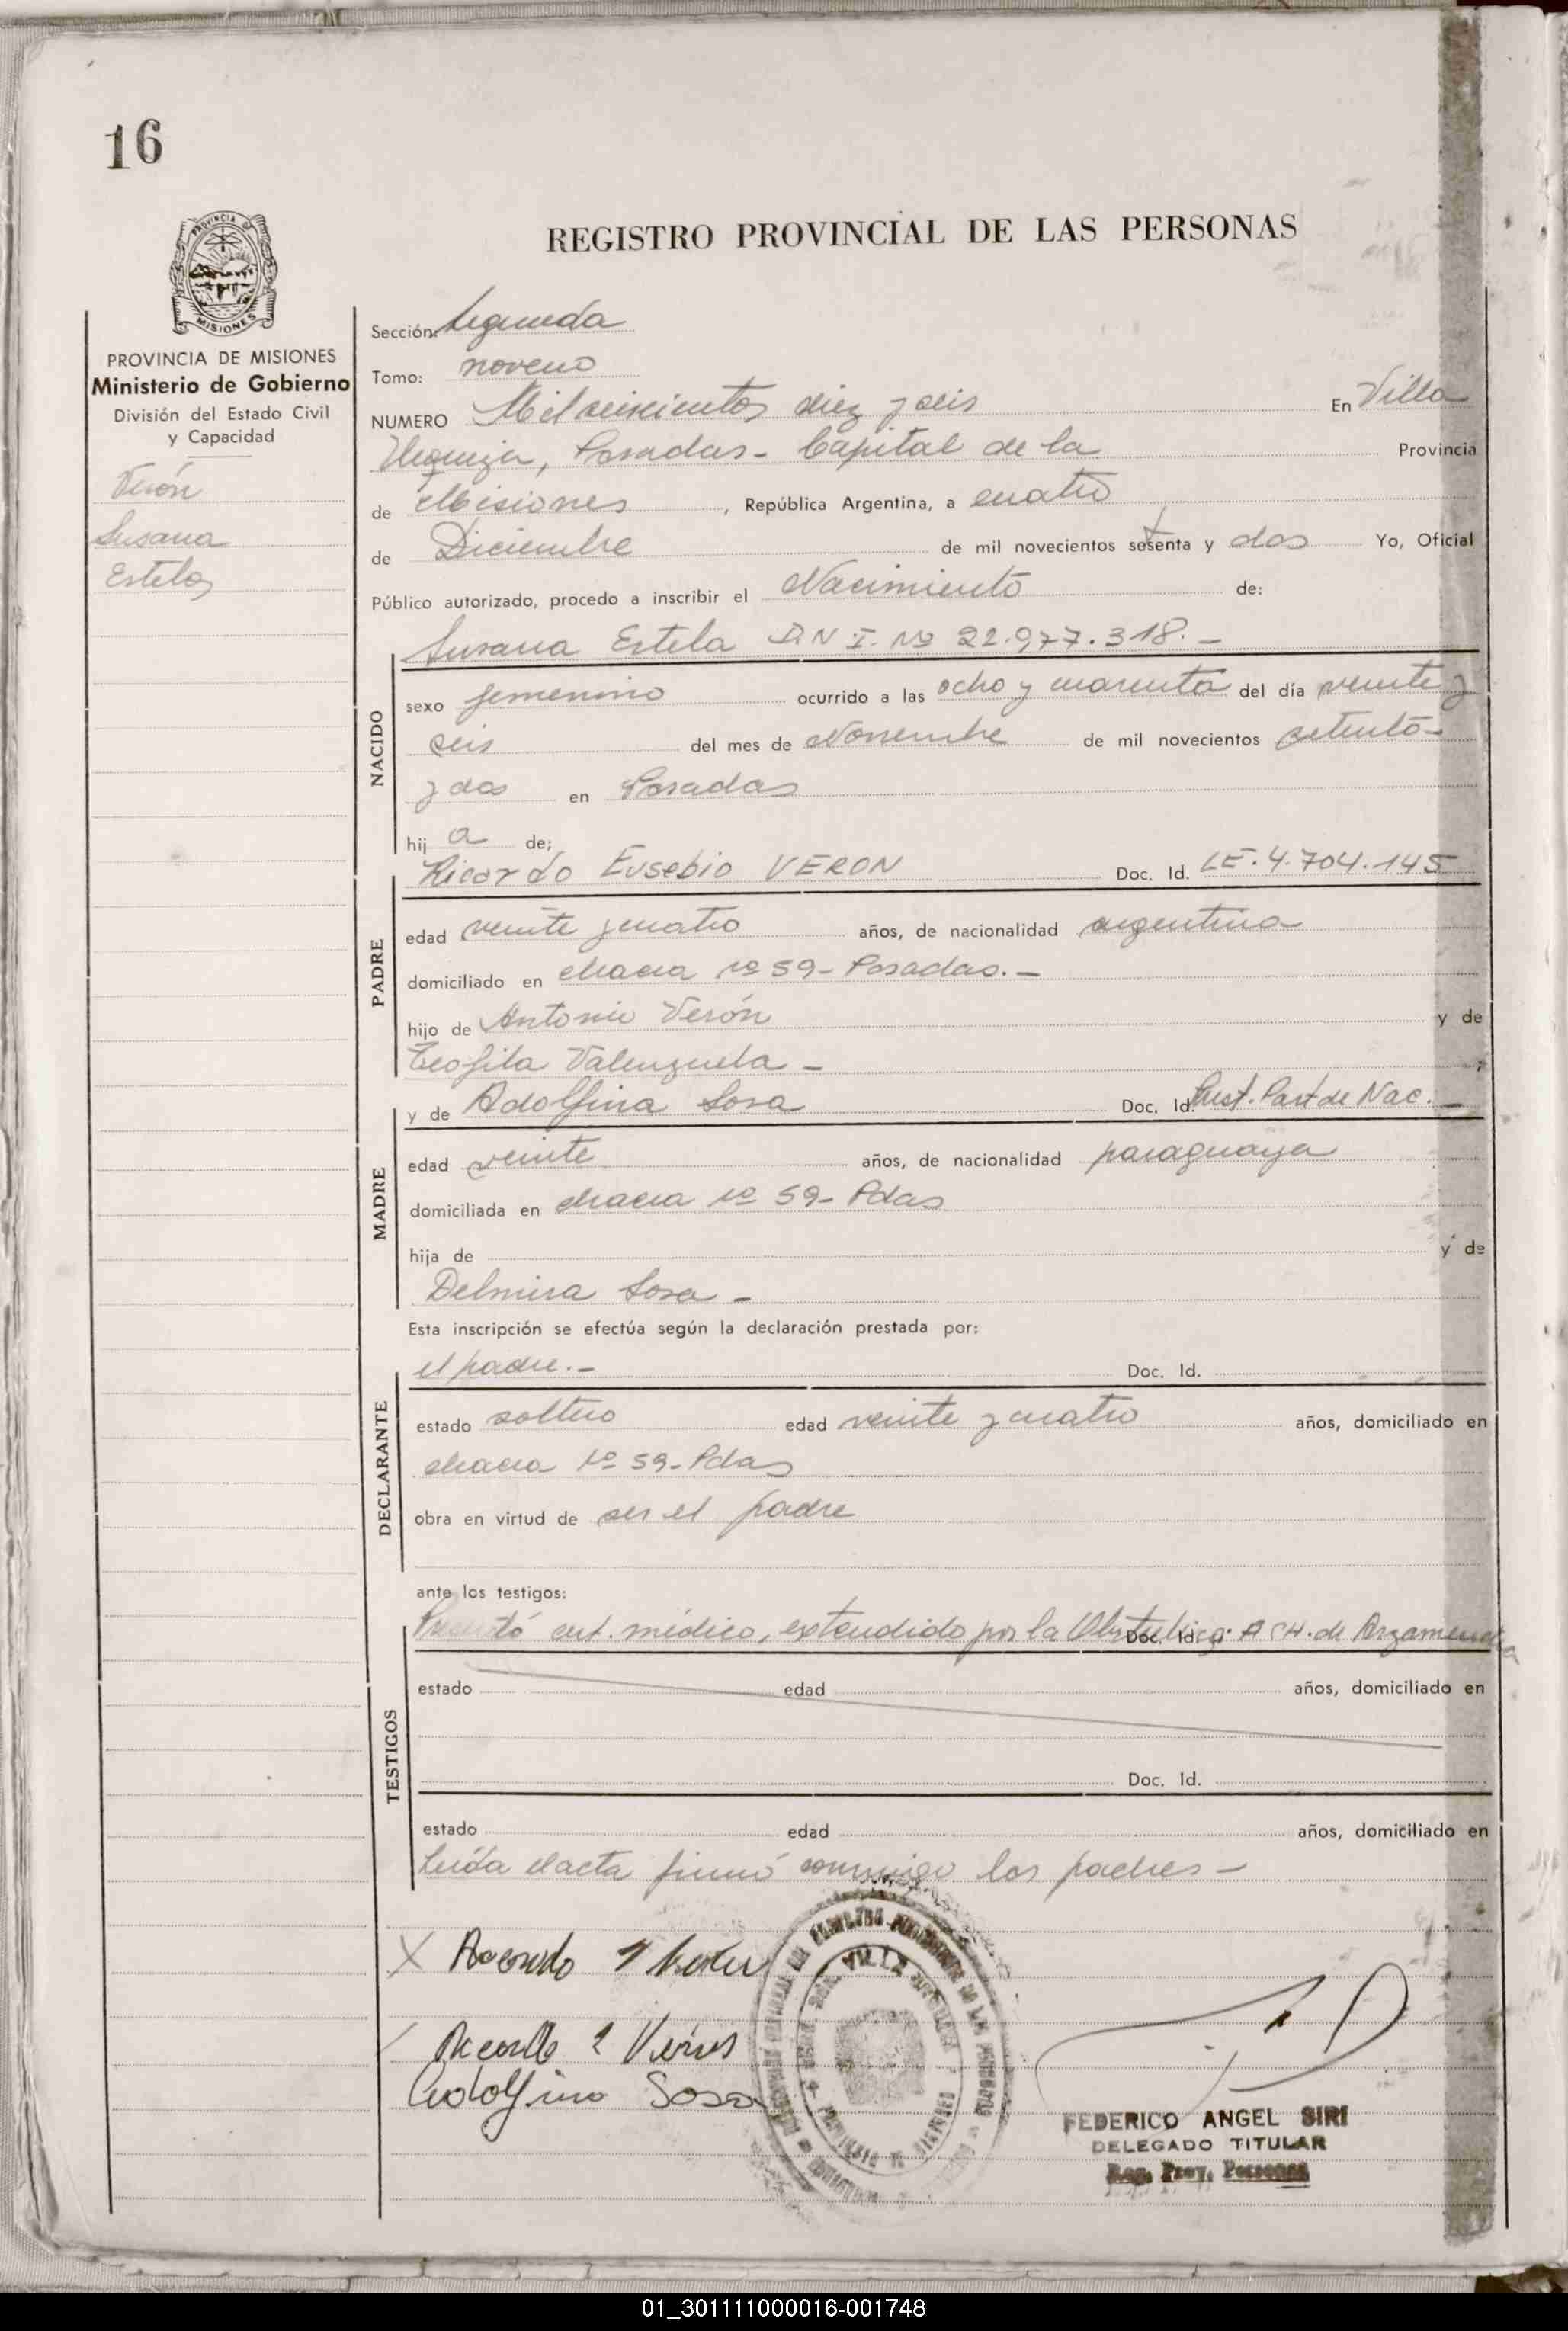 16
REGISTRO PROVINCIAL DE LAS PERSONAS
PROVINCIA DE MISIONES
Ministerio de Gobierno
División del Estado Civil
y Capacidad
Verón
Susana
Estela
Sección: Segunda
Tomo: noveno
NUMERO Mil seiscientos diez y seis En Villa
Urquiza, Posadas - Capital de la Provincia
de Misiones, República Argentina, a cuatro
de Diciembre de mil novecientos setenta y dos Yo, Oficial
Público autorizado, procedo a inscribir el Nacimiento de:
Susana Estela D.N.I. Nº 22.977.318.-
NACIDO
sexo femenino ocurrido a las ocho y cuarenta del día veinte y
seis del mes de Noviembre de mil novecientos setenta
y dos en Posadas
hij a de;
Ricardo Eusebio VERON Doc. Id. LE. 4.704.145
PADRE
edad veinte y cuatro años, de nacionalidad argentina
domiciliado en chacra nº 59- Posadas.-
hijo de Antonio Verón y de
Teofila Valenzuela -
y de Adolfina Sosa Doc. Id. Part de Nac.-
MADRE
edad veinte años, de nacionalidad paraguaya
domiciliada en chacra nº 59- Pdas
hija de y de
Delmira Sosa -
Esta inscripción se efectúa según la declaración prestada por:
el padre.- Doc. Id.
DECLARANTE
estado soltero edad veinte y cuatro años, domiciliado en
chacra Nº 59- Pdas
obra en virtud de ser el padre
ante los testigos:
Presentó cert. médico, extendido por la Obstetrica: Doc. Id. A CH. de Arzamendia
TESTIGOS
estado edad años, domiciliado en
Doc. Id.
estado edad años, domiciliado en
Leída el acta firmó conmigo los padres -
X
Verón
Adolfina Sosa
VILLA
FEDERICO ANGEL SIRI
DELEGADO TITULAR
Reg. Prov. Personas
01_301111000016-001748